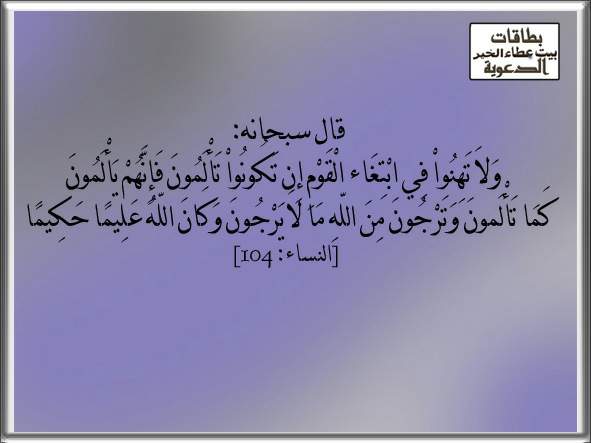 بطاقات
بيت عطاء الخير
الدعوية
قال سبحانه:
وَلاَ تَهِنُواْ فِي ابْتِغَاء الْقَوْمِ إِن تَكُونُواْ تَأْلَمُونَ فَإِنَّهُمْ يَأْلَمُونَ
كَمَا تَأْلَمونَ وَتَرْجُونَ مِنَ اللّهِ مَا لاَ يَرْجُونَ وَكَانَ اللّهُ عَلِيمًا حَكِيمًا
[النساء: 104]